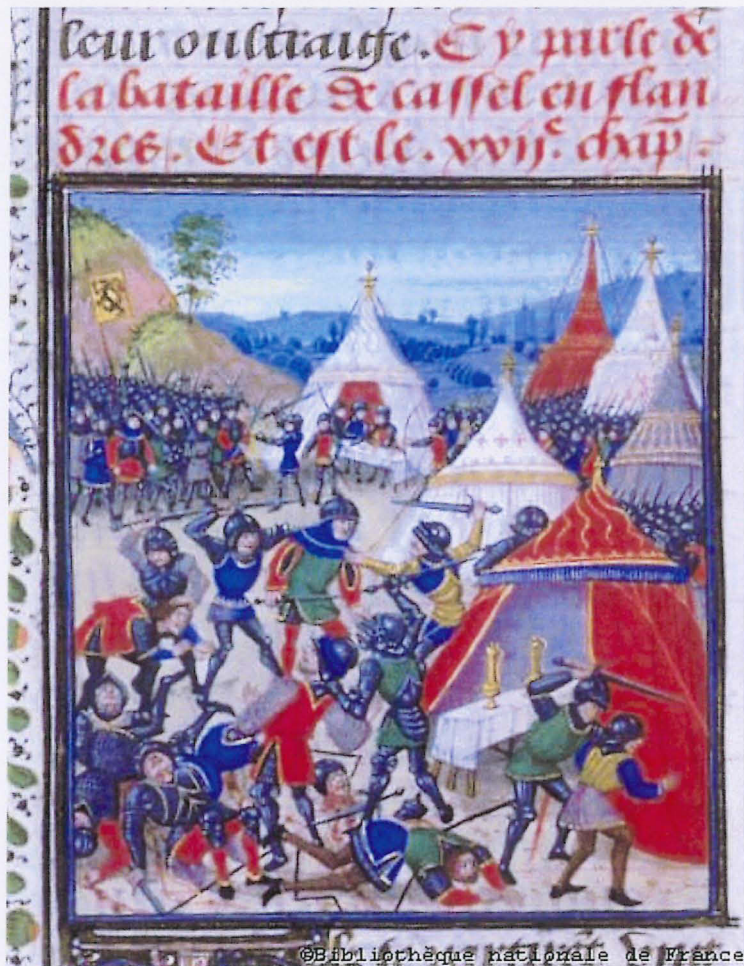 leur oultraige. Cy parle de
la bataille de cassel en flan
dres. Et est le. xvij.e chap.
©Bibliothèque nationale de France